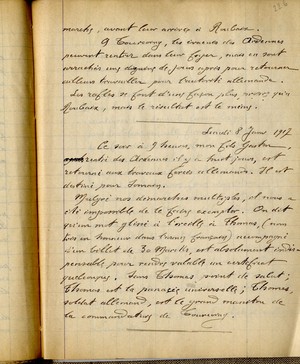 marchs, avant leur arrivée à Roubaix.
A Tourcoing, les évacués des Ardennes
peuvent rentrer dans leur foyer, mais en sont
arrachés une dizaine de jours après pour retourner
ailleurs travailler pour l'autorité allemande.
Les rafles se font donc façon plus qu'à
Roubaix, mais le résultat est le même.
Lundi 8 Juin 1917
Ce soir à 9 heures, mon fils Gaston,
des Ardennes il y a huit jours, est
retourné aux travaux forcés allemands. Il est
destiné pour
Malgré nos démarches multiples, il nous a
été impossible de le faire exempter. On dit
qu'un mot glissé à l'oreille à Thomas, (
accompagné
d'un billet de 30 Marks, est absolument indis-
pensable pour rendre valable un certificat
quelconque. Sans Thomas point de salut;
Thomas est la panacée universelle; Thomas,
soldat allemand, est le grand monstre de
la commandature de Tourcoing.